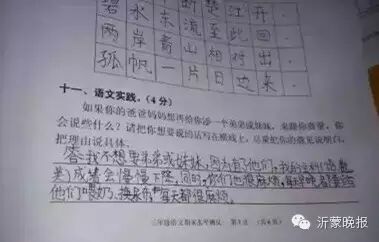 碧水东流至此回.
两岸青山相对出.
孤帆一片日边来.
十一、语文实践。(4分)
如果你的爸爸妈妈想再给你添一个弟弟或妹妹,来跟你商量,你
会说些什么?请把你想要说的话写在横线上,尽量把你的意见说明白,
把理由说具体。
答:我不想要弟弟或妹妹,因为有了他们,我的
成绩会慢慢下降。同时,你们也很麻烦,每早晚都要给
他们喂奶、换尿布,每天都很麻烦。
三年级语文期末水平测试 第5页 (共6页)
沂蒙晚报